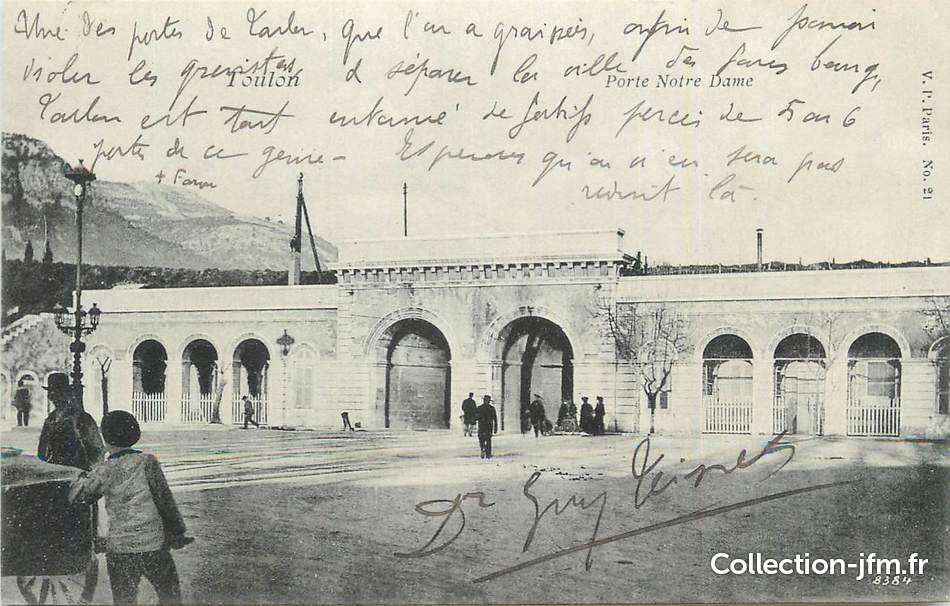 Une des portes de Toulon, que l'on a graissées, afin de pouvoir
violer les grévistes & séparer la ville des faubourg,
Toulon
Porte Notre Dame
Toulon est tout entouré de fortifs percés de 5 ou 6
portes de ce genre - Esperons qu'on n'en sera pas
réduit là.
V. P. Paris. No. 21
Dr Guy
Collection-jfm.fr
8384